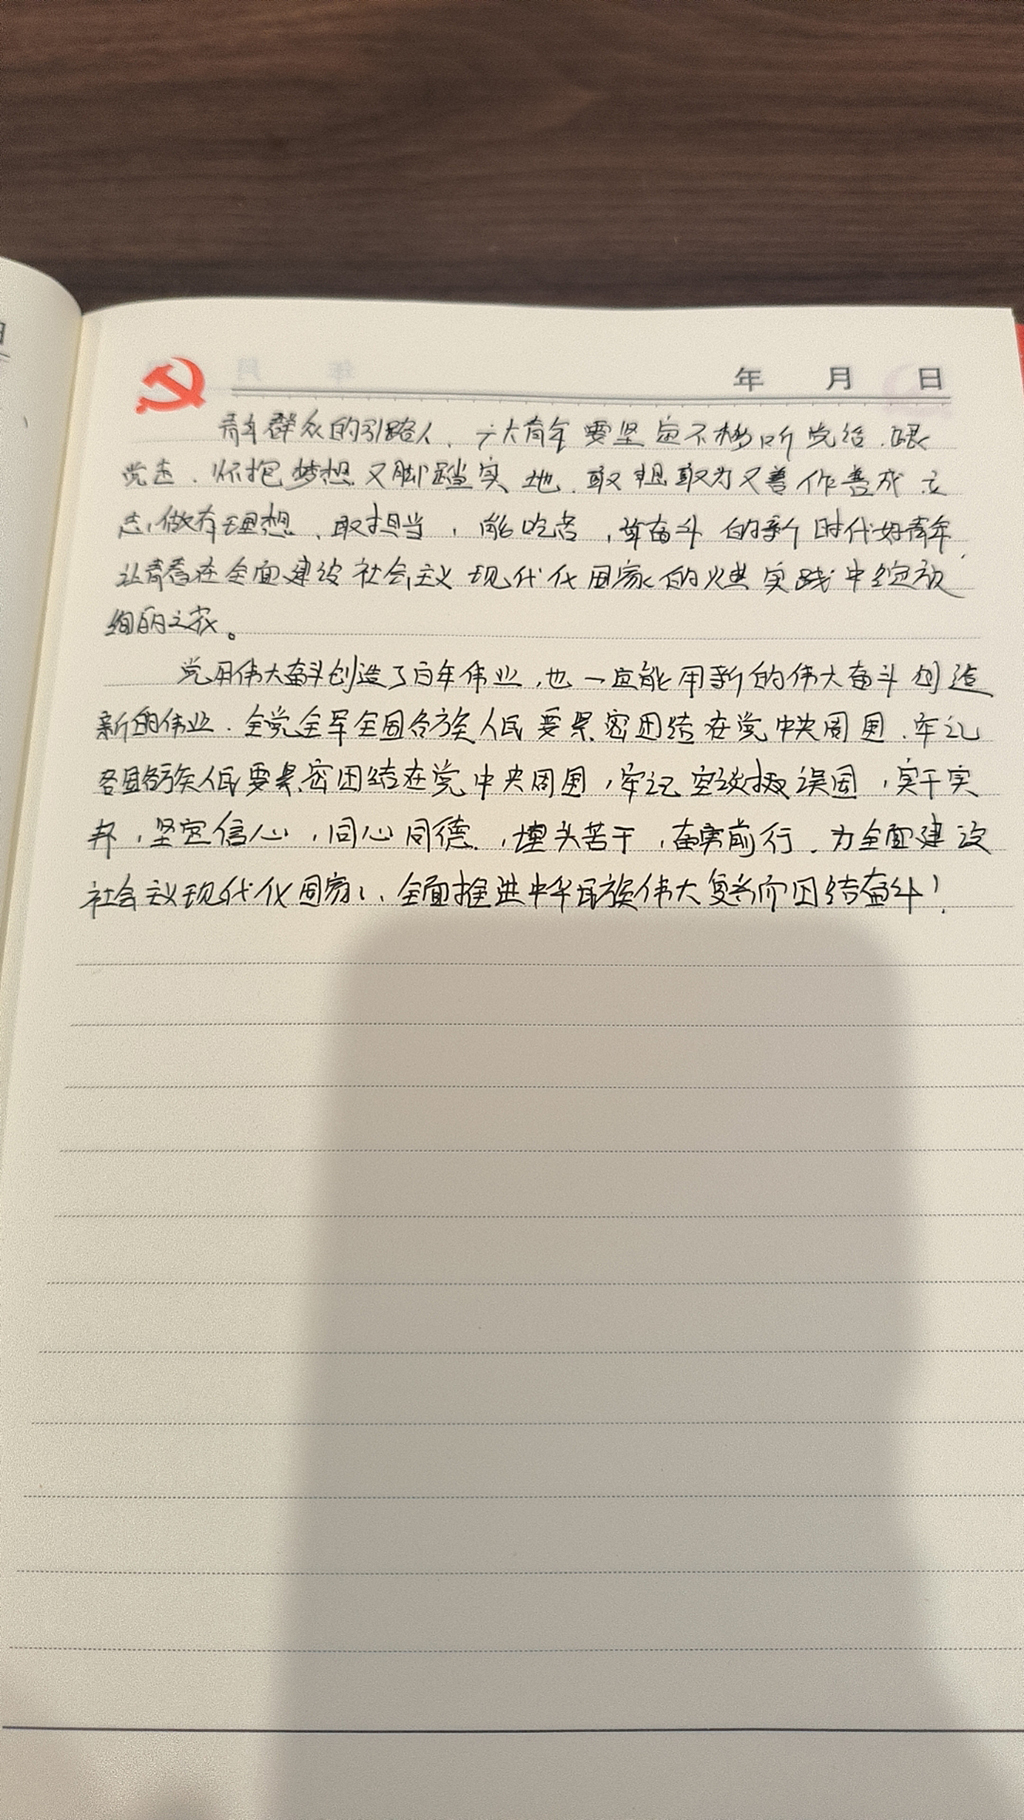 年 月 日
青年群众的引路人，广大青年要坚定不移听党话、跟
党走，怀抱梦想又脚踏实地，敢想敢为又善作善成，立
志做有理想、敢担当，能吃苦，肯奋斗的新时代好青年，
让青春在全面建设社会主义现代化国家的火热实践中绽放
绚丽之花。
党用伟大奋斗创造了百年伟业，也一定能用新的伟大奋斗创造
新的伟业．全党全军全国各族人民要紧密团结在党中央周围，牢记
各国各族人民要紧密团结在党中央周围，牢记空谈误国，实干兴
邦，坚定信心，同心同德，埋头苦干，奋勇前行，为全面建设
社会主义现代化国家、全面推进中华民族伟大复兴而团结奋斗！